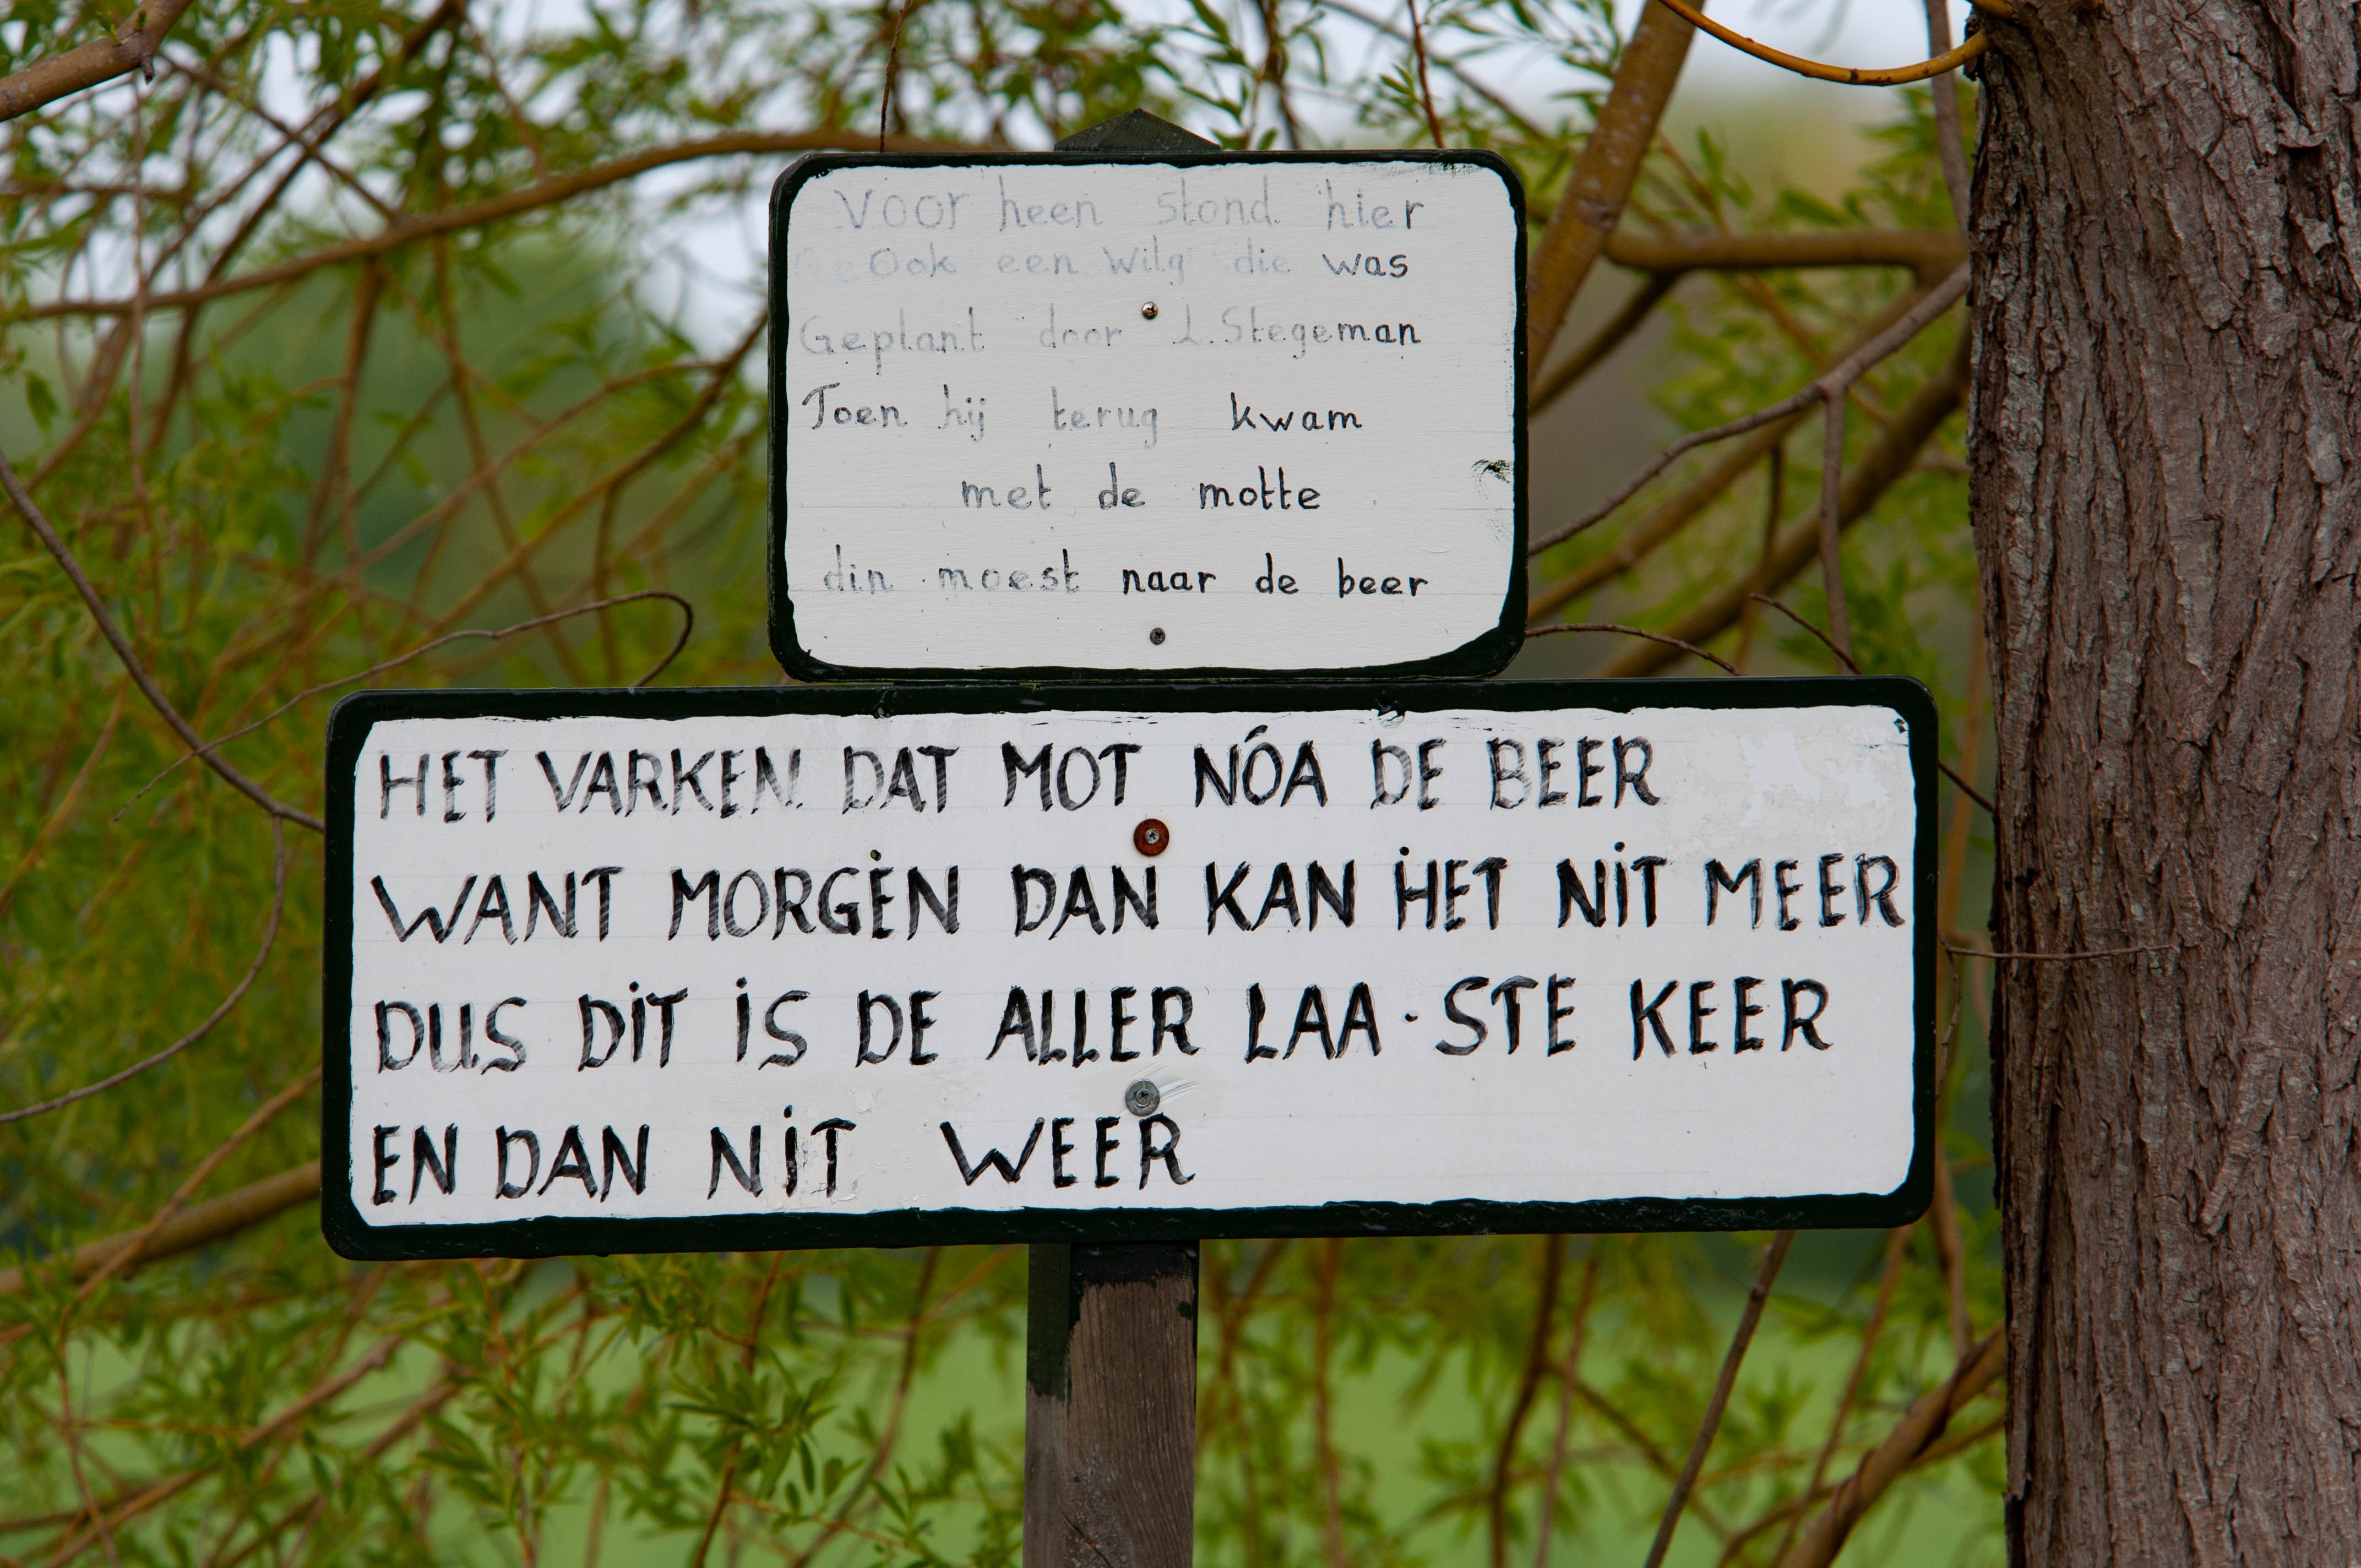 Voor heen stond hier
Ook een Wilg die was
Geplant door L. Stegeman
Toen hij terug kwam
met de motte
din moest naar de beer
HET VARKEN DAT MOT NÓA DE BEER
WANT MORGEN DAN KAN HET NIT MEER
DUS DIT IS DE ALLER LAA·STE KEER
EN DAN NIT WEER